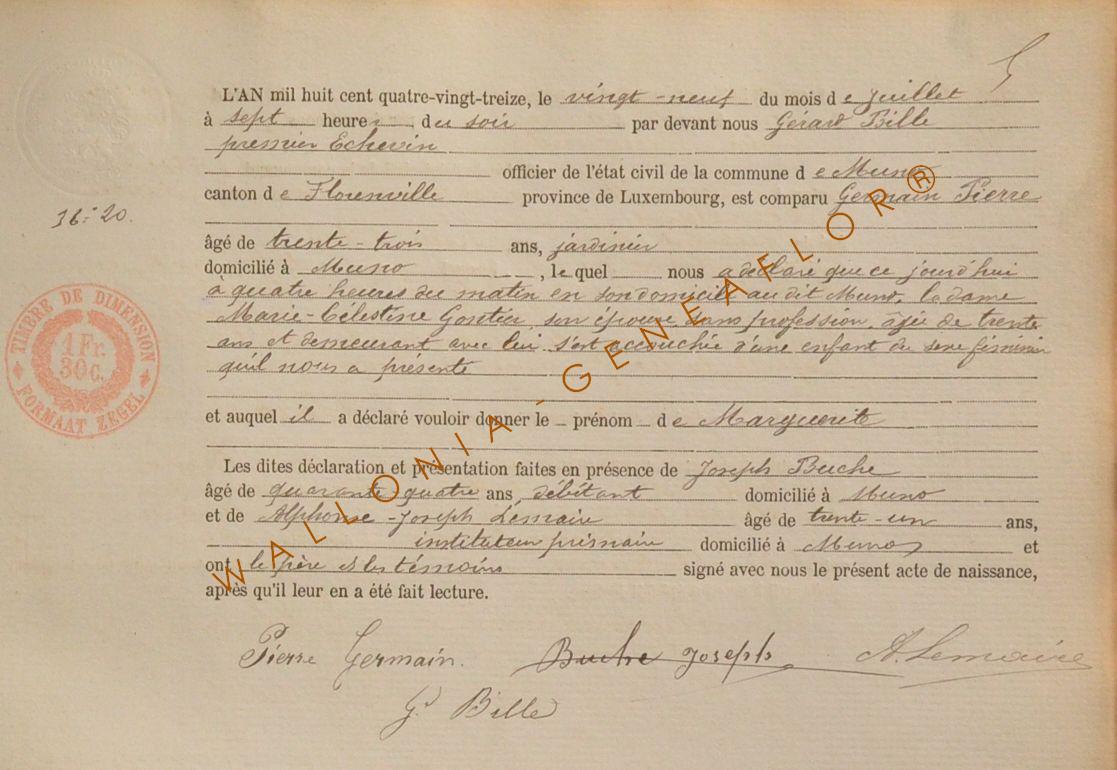 L'AN mil huit cent quatre-vingt-treize, le vingt-neuf du mois de juillet
à sept heures du soir par devant nous Gérard Bille
premier Echevin
officier de l'état civil de la commune de Muno
36-20.
canton de Florenville province de Luxembourg, est comparu Germain Pierre
âgé de trente-trois ans, jardinier
domicilié à Muno, lequel nous a déclaré que ce jourd'hui
à quatre heures du matin en son domicile audit Muno, la dame
Marie-Célestine Gontier son épouse, sans profession, âgée de trente
ans et demeurant avec lui s'est accouchée d'une enfant du sexe féminin
qu'il nous a présenté
TIMBRE DE DIMENSION
1 Fr.
30 C.
FORMAAT ZEGEL
et auquel il a déclaré vouloir donner le prénom de Marguerite
Les dites déclaration et présentation faites en présence de Joseph Buche
âgé de quarante quatre ans, débitant domicilié à Muno
et de Alphonse-Joseph Lemaire âgé de trente-un ans,
instituteur primaire domicilié à Muno et
ont le père et les témoins signé avec nous le présent acte de naissance,
après qu'il leur en a été fait lecture.
Pierre Germain. Buche Joseph A. Lemaire
Gd Bille
WALLONIA-GENEAFLOR®